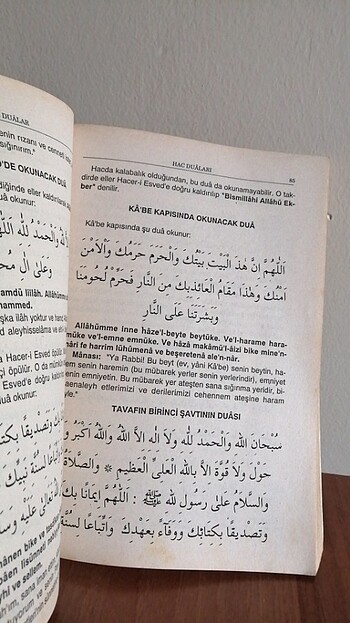 DUÂLAR
enin rızanı ve cenneti
sığınırım."
D'DE OKUNACAK DUÂ
diğinde eller kaldırılarak
duâ okunur:
وَالْحَمْدُ لِلّٰهِ
وَعَلٰى اٰلِ
amdü lillâh. Allâhümme
hammed.
şka ilâh yoktur ve
d aleyhisselâma ve
Hacer-i Esved öpülür.
içi öpülür.
a Hacer-i Esved'e doğru
duâ okunur:
وَتَصْدِيقًا بِكِتَابِكَ
لِسُنَّةِ نَبِيِّكَ
تَعَالٰى عَلَيْهِ وَ
mânen bike ve
bâen lisünneti
yhi ve sellem.
HAC DUALARI 85
Hacda kalabalık olduğundan, bu duâ da okunamayabilir. O tak-
dirde eller Hacer-i Esved'e doğru kaldırılıp "Bismillâhi Allâhü Ek-
ber" denilir.
KÂ'BE KAPISINDA OKUNACAK DUÂ
Kâ'be kapısında şu duâ okunur:
اَللّٰهُمَّ اِنَّ هٰذَا الْبَيْتَ بَيْتُكَ وَالْحَرَمَ حَرَمُكَ وَالْاَمْنَ
اَمْنُكَ وَهٰذَا مَقَامُ الْعَائِذِ بِكَ مِنَ النَّارِ فَحَرِّمْ لُحُومَنَا
وَبَشَرَتَنَا عَلَى النَّارِ
Allâhümme inne hâze'l-beyte beytüke. Ve'l-harame hara-
müke ve'l-emne emnüke. Ve hâzâ makâmü'l-âizi bike mine'n-
nâri fe harrim lühûmenâ ve beşeretenâ ale'n-nâr.
Mânâsı: "Ya Rabbi! Bu beyt (ev, yâni Kâ'be) senin beytin, ha-
rem senin haremin (bu mübarek yerler senin yerlerindir), emniyet
senin emniyetin. Bu mübarek yer ateşten sana sığınma yeridir, bi-
naenaleyh etlerimizi ve derilerimizi cehennem ateşine haram
eyle."
TAVAFIN BİRİNCİ ŞAVTININ DUÂSI
سُبْحَانَ اللّٰهِ وَالْحَمْدُ لِلّٰهِ وَلَا اِلٰهَ اِلَّا اللّٰهُ وَاللّٰهُ اَكْبَرُ وَلَا
حَوْلَ وَلَا قُوَّةَ اِلَّا بِاللّٰهِ الْعَلِيِّ الْعَظِيمِ ❊ وَالصَّلَاةُ
وَالسَّلَامُ عَلٰى رَسُولِ اللّٰهِ ﷺ : اَللّٰهُمَّ اِيمَانًا بِكَ
وَتَصْدِيقًا بِكِتَابِكَ وَوَفَاءً بِعَهْدِكَ وَاتِّبَاعًا لِسُنَّةِ